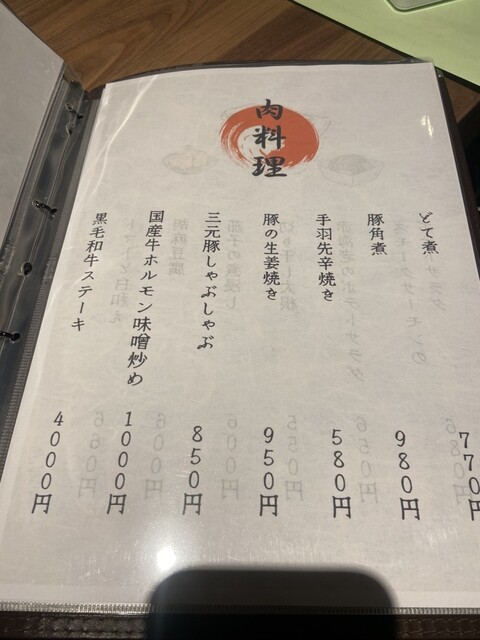 肉料理
どて煮
770円
豚角煮
980円
手羽先辛焼き
580円
豚の生姜焼き
950円
三元豚しゃぶしゃぶ
850円
国産牛ホルモン味噌炒め
1000円
黒毛和牛ステーキ
4000円